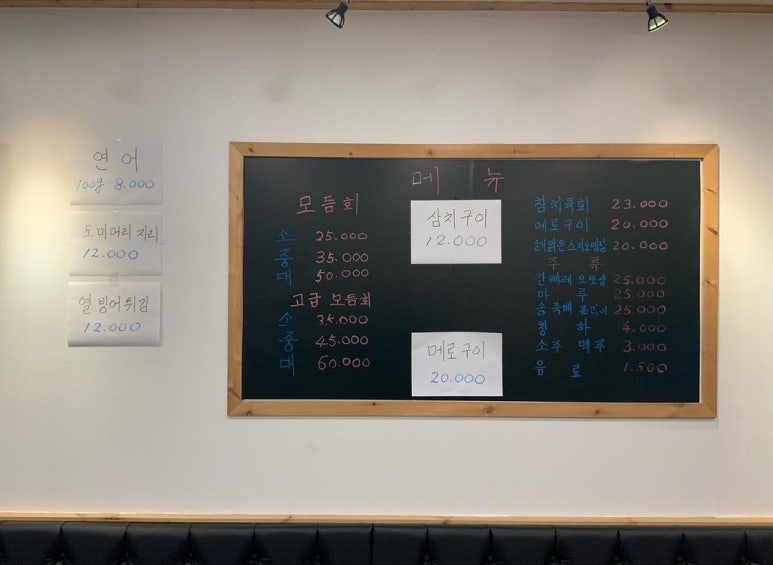 연어
100g 8.000
도미머리 지리
12.000
열빙어튀김
12.000
메 뉴
모듬회
소 25.000
중 35.000
대 50.000
고급 모듬회
소 35.000
중 45.000
대 60.000
삼치구이
12.000
메로구이
20.000
참치육회 23.000
메로구이 20.000
20.000
주 류
간빠레 오또상 25.000
마 루 25.000
송죽매 25.000
청 하 4.000
소주 맥주 3.000
음 료 1.500